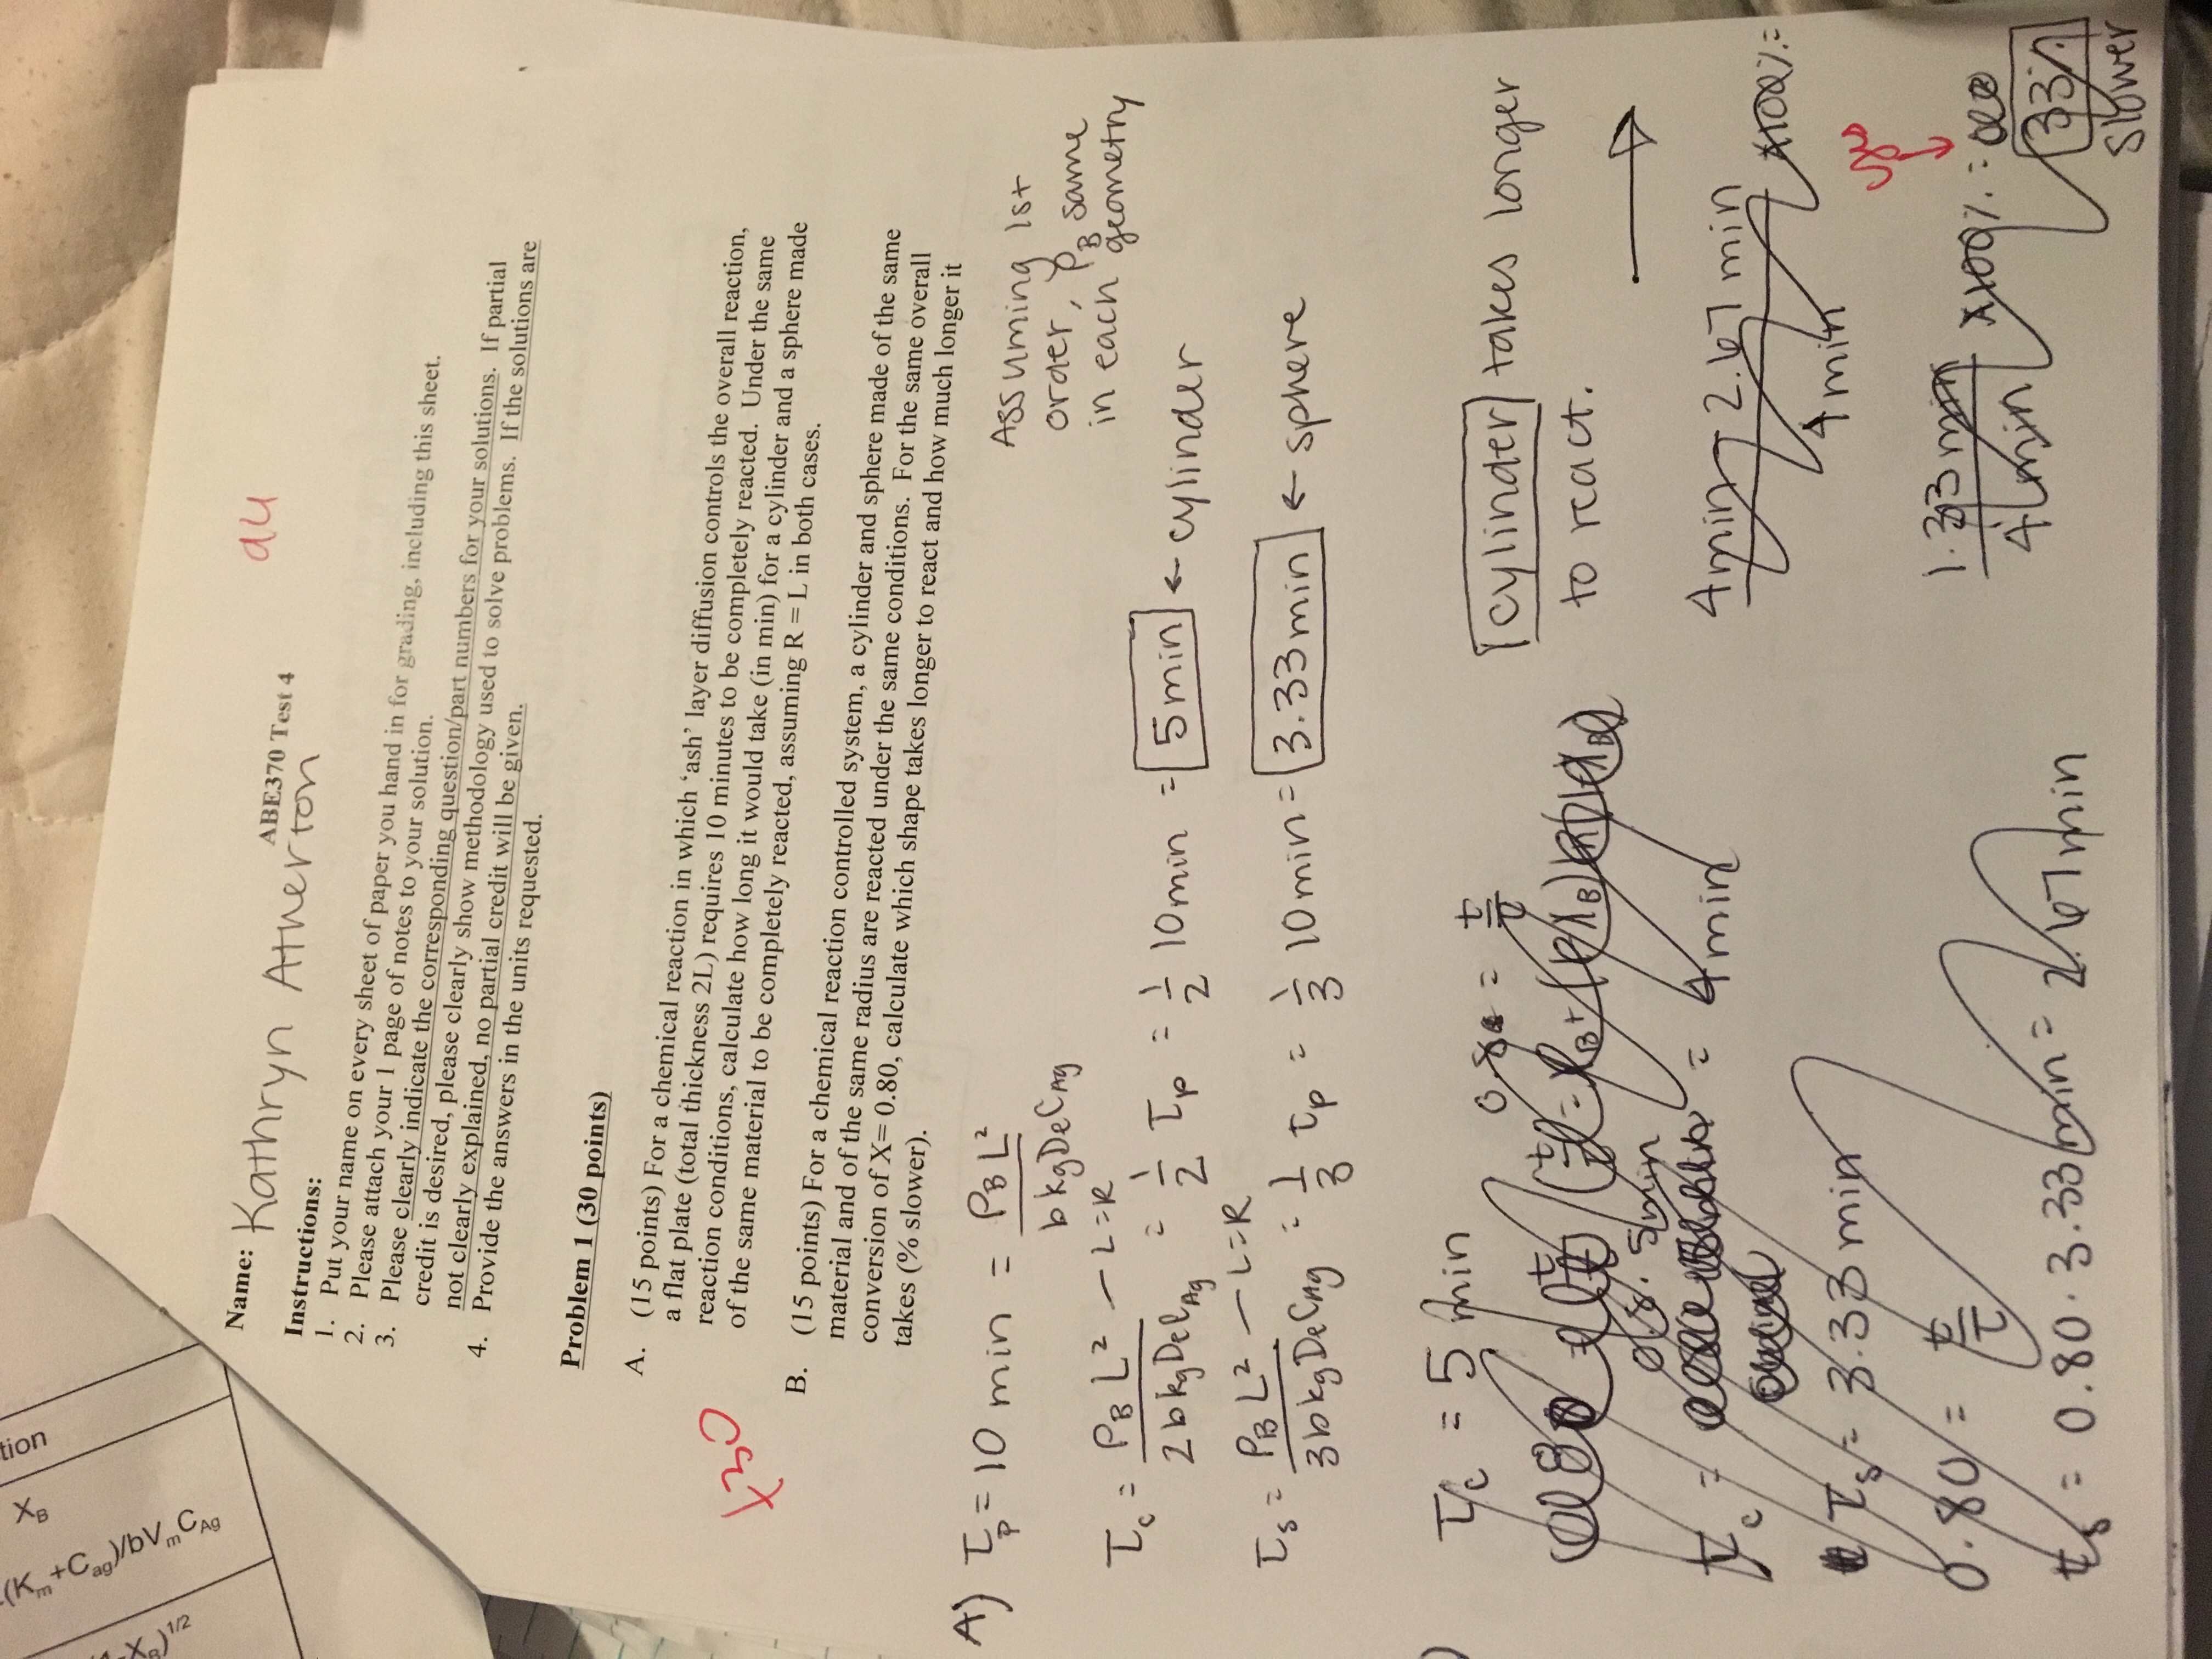 tion
X_B
(K_m+C_ag)/bV_mC_Ag
X_B)^1/2
Name: Kathryn Atherton
ABE370 Test 4
94
Instructions:
1. Put your name on every sheet of paper you hand in for grading, including this sheet.
2. Please attach your 1 page of notes to your solution.
3. Please clearly indicate the corresponding question/part numbers for your solutions. If partial
credit is desired, please clearly show methodology used to solve problems. If the solutions are
not clearly explained, no partial credit will be given.
4. Provide the answers in the units requested.
Problem 1 (30 points)
+30
A. (15 points) For a chemical reaction in which ‘ash’ layer diffusion controls the overall reaction,
a flat plate (total thickness 2L) requires 10 minutes to be completely reacted. Under the same
reaction conditions, calculate how long it would take (in min) for a cylinder and a sphere made
of the same material to be completely reacted, assuming R = L in both cases.
B. (15 points) For a chemical reaction controlled system, a cylinder and sphere made of the same
material and of the same radius are reacted under the same conditions. For the same overall
conversion of X= 0.80, calculate which shape takes longer to react and how much longer it
takes (% slower).
A) τ_p = 10 min = ρ_B L² / b kg De C_Ag
Assuming 1st
order, ρ_B same
in each geometry
τ_c = ρ_B L² / 2 b kg De C_Ag — L=R = 1/2 τ_p = 1/2 10 min = 5 min ← cylinder
τ_s = ρ_B L² / 3 b kg De C_Ag — L=R = 1/3 τ_p = 1/3 10 min = 3.33 min ← sphere
)
τ_c = 5 min
0.80 = t/τ
0.8 · 5 min
τ_c = = 4 min
τ_s = 3.33 min
0.80 = t/τ
t_s = 0.80 · 3.33 min = 2.67 min
cylinder takes longer
to react.
4 min - 2.67 min / 4 min x100% =
yes
1.33 min / 4 min x100% =
33%
slower